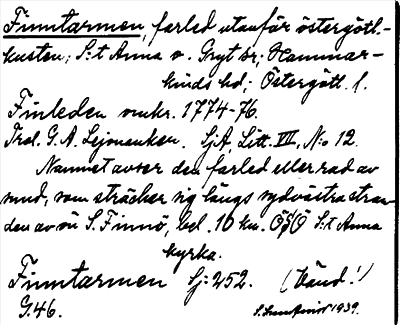 Finntarmen, farled utanför östergötl.-
kusten; S:t Anna o. Gryt sr; Hammar-
kinds hd; Östergötl. l.
Finleden omkr. 1774-76.
Trol. G. A. Lejonanker. SjA, Litt. VII, N:o 12.
Namnet avser den farled eller rad av
sund, som sträcker sig längs sydvästra stran-
den av ön S. Finnö, bel. 10 km. ÖSÖ S:t Anna
kyrka.
Finntarmen Sj: 252. (Vänd!)
G.46. 1939.